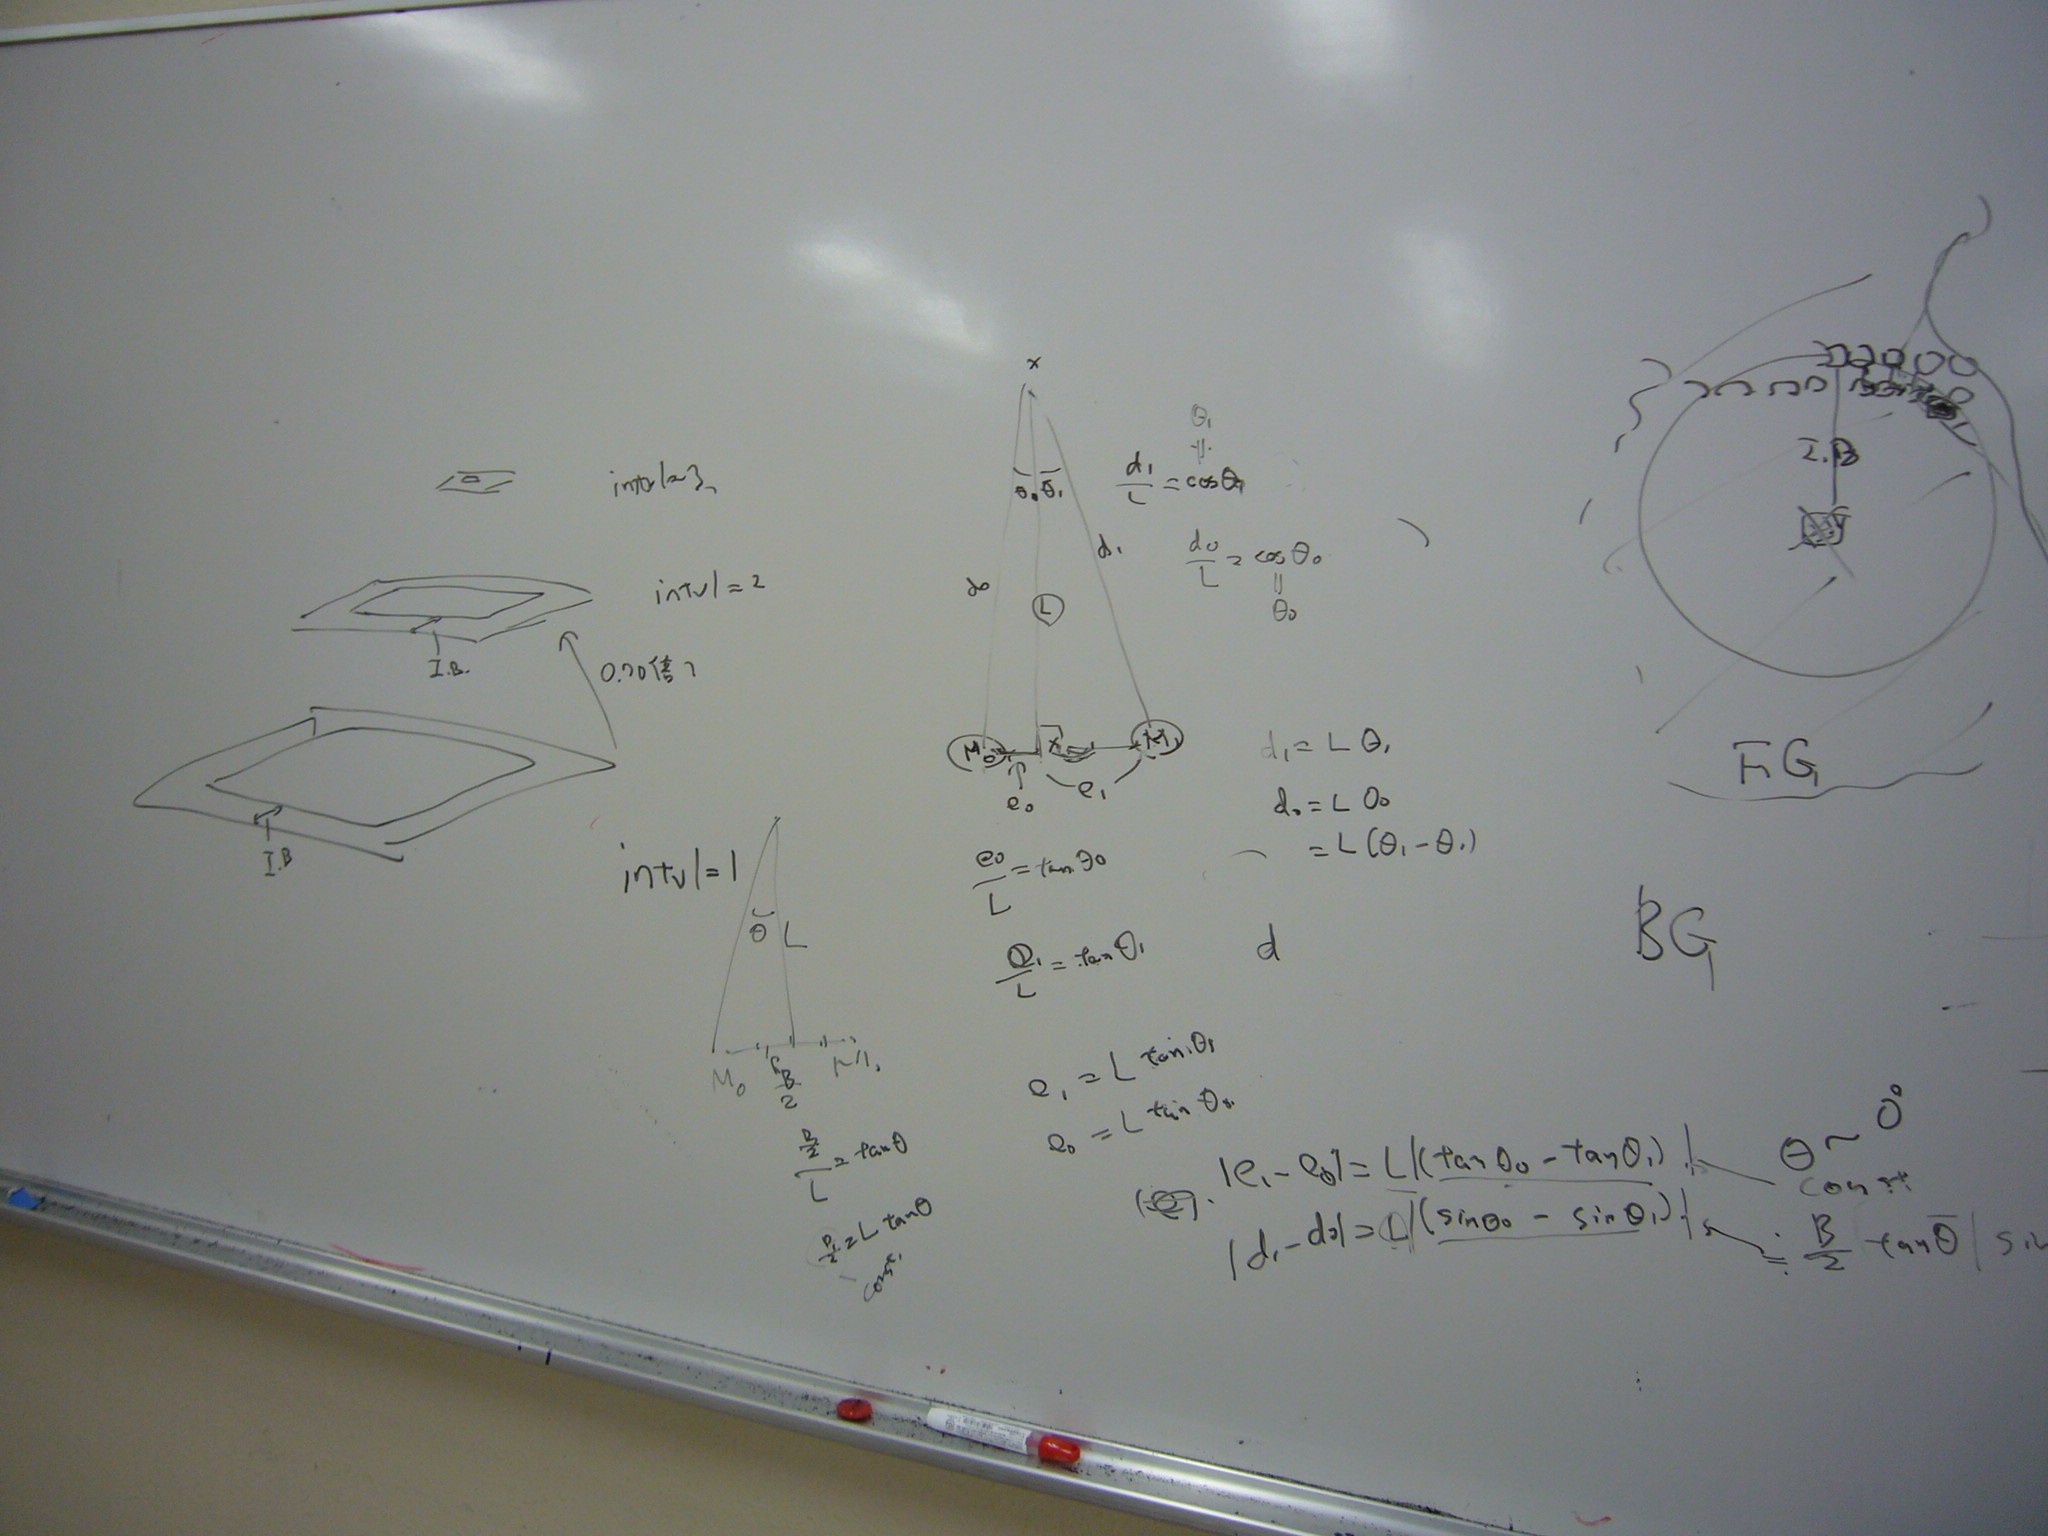 intvl=3
intvl=2
I.B.
0.70倍
I.B
intvl=1
θ L
M₀ B/2 M₁
B/2 / L = tanθ
B/2 = L tanθ
const.
x
θ₀ θ₁
d₀ L d₁
M₀ x M₁
e₀ e₁
θ₁
॥
d₁/L = cosθ₁
d₀/L = cosθ₀
॥
θ₀
e₀/L = tanθ₀
e₁/L = tanθ₁
d₁ = L θ₁
d₀ = L θ₀
= L(θ₁ - θ₁)
d
e₁ = L tanθ₁
e₀ = L tanθ₀
|e₁ - e₀| = L|(tanθ₀ - tanθ₁)|
|d₁ - d₀| = L|(sinθ₀ - sinθ₁)|
θ ~ 0°
const
≒ B/2 tanθ̄ | sin
I.B
FG
BG